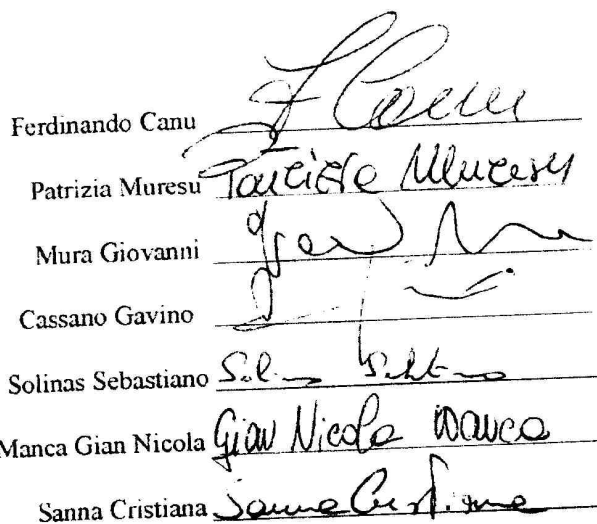 Ferdinando Canu F Canu
Patrizia Muresu Patrizia Muresu
Mura Giovanni
Cassano Gavino
Solinas Sebastiano
Manca Gian Nicola Gian Nicola Manca
Sanna Cristiana Sanna Cristiana